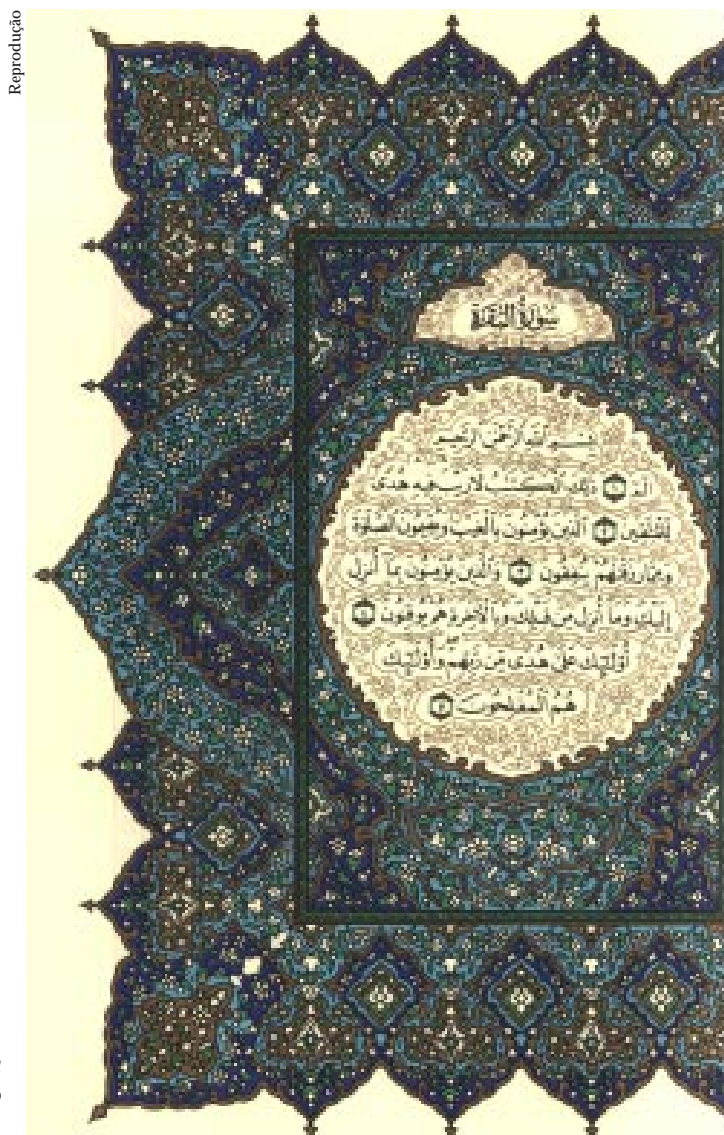 Reprodução
سُورَةُ الْبَقَرَةِ
بِسْمِ اللَّهِ الرَّحْمَٰنِ الرَّحِيمِ
الٓمٓ ۝ ذَٰلِكَ الْكِتَٰبُ لَا رَيْبَ فِيهِ هُدًى
لِّلْمُتَّقِينَ ۝ الَّذِينَ يُؤْمِنُونَ بِالْغَيْبِ وَيُقِيمُونَ الصَّلَوٰةَ
وَمِمَّا رَزَقْنَٰهُمْ يُنفِقُونَ ۝ وَالَّذِينَ يُؤْمِنُونَ بِمَآ أُنزِلَ
إِلَيْكَ وَمَآ أُنزِلَ مِن قَبْلِكَ وَبِالْأَخِرَةِ هُمْ يُوقِنُونَ ۝
أُو۟لَٰٓئِكَ عَلَىٰ هُدًى مِّن رَّبِّهِمْ وَأُو۟لَٰٓئِكَ
هُمُ الْمُفْلِحُونَ ۝